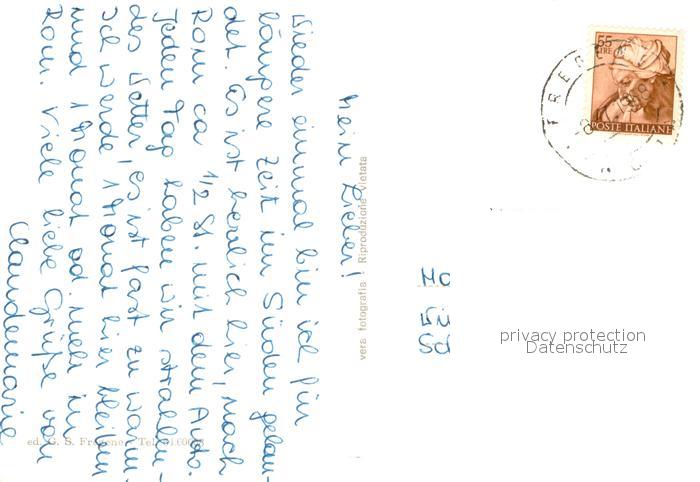 Mein Lieber!
Wieder einmal bin ich für
längere Zeit im Süden gelan-
det. Es ist herrlich hier, nach
Rom ca 1/2 St. mit dem Auto.
Jeden Tag haben wir strahlen-
des Wetter, es ist fast zu warm.
Ich werde 1 Monat hier bleiben
und 1 Monat od. mehr in
Rom. Viele liebe Grüße von
Claudemarie
vera fotografia Riproduzione vietata
ed. G. S. Fregene - Tel.
55
LIRE
POSTE ITALIANE
FREGENE
privacy protection
Datenschutz